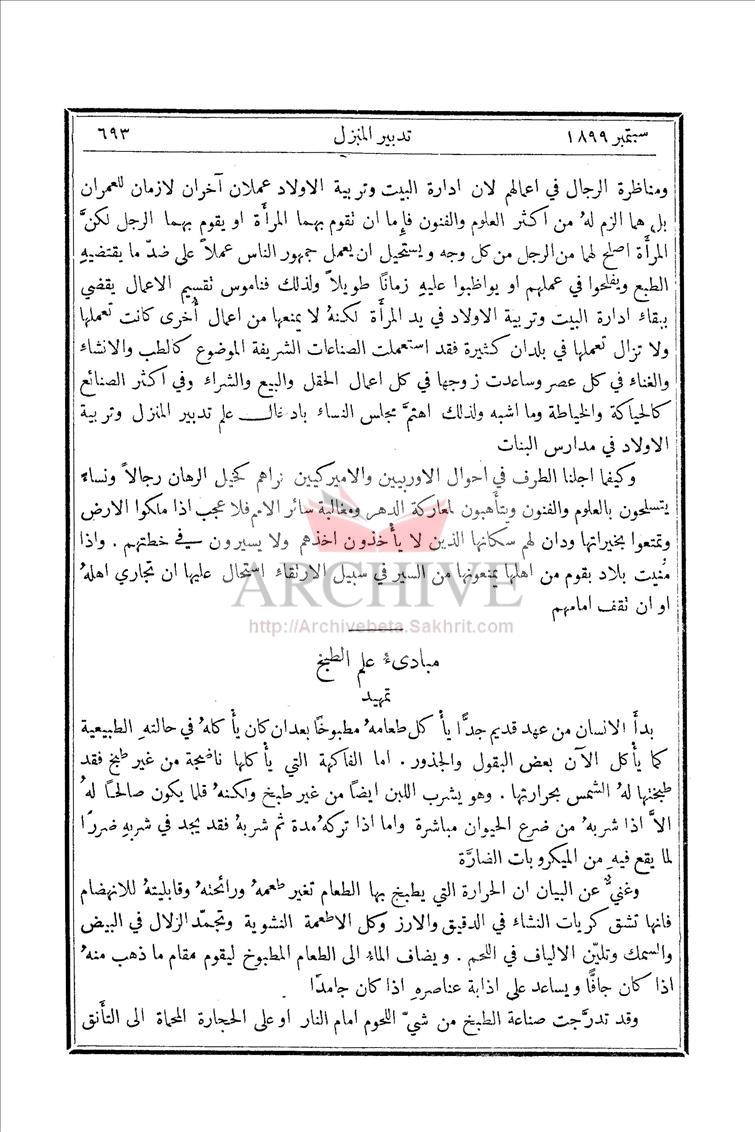 سبتمبر ١٨٩٩ تدبير المنزل ٦٩٣
ومناظرة الرجال في اعمالهم لان ادارة البيت وتربية الاولاد عملان آخران لازمان للعمران
بل هما الزم لهُ من اكثر العلوم والفنون فإِما ان تقوم بهما المرأَة او يقوم بهما الرجل لكنَّ
المرأَة اصلح لهما من الرجل من كل وجه ويستحيل ان يعمل جمهور الناس عملاً على ضدّ ما يقتضيهِ
الطبع ويفلحوا في عملهم او يواظبوا عليهِ زمانًا طويلاً ولذلك فناموس تقسيم الاعمال يقضي
ببقاء ادارة البيت وتربية الاولاد في يد المرأَة لكنهُ لا يمنعها من اعمال أُخرى كانت تعملها
ولا تزال تعملها في بلدان كثيرة فقد استعملت الصناعات الشريفة الموضوع كالطب والانشاء
والغناء في كل عصر وساعدت زوجها في كل اعمال الحقل والبيع والشراء وفي اكثر الصنائع
كالحياكة والخياطة وما اشبه ولذلك اهتمَّ مجلس النساء بادخال علم تدبير المنزل وتربية
الاولاد في مدارس البنات
وكيفما اجلنا الطرف في احوال الاوربيين والاميركيين نراهم كخيل الرهان رجالاً ونساءً
يتسلحون بالعلوم والفنون ويتأَهبون لمعاركة الدهر ومغالبة سائر الامم فلا عجب اذا ملكوا الارض
وتمتعوا بخيراتها ودان لهم سكانها الذين لا يأْخذون اخذهم ولا يسيرون في خطتهم . واذا
مُنيت بلاد بقوم من اهلها يمنعونها من السير في سبيل الارتقاء استحال عليها ان تجاري اهلهُ
او ان تقف امامهم
ARCHIVE
http://Archivebeta.Sakhrit.com
مبادىء علم الطبخ
تمهيد
بدأَ الانسان من عهد قديم جدًّا يأكل طعامهُ مطبوخًا بعد ان كان يأكلهُ في حالتهِ الطبيعية
كما يأكل الآن بعض البقول والجذور . اما الفاكهة التي يأكلها ناضجة من غير طبخ فقد
طبختها لهُ الشمس بحرارتها . وهو يشرب اللبن ايضًا من غير طبخ ولكنهُ قلما يكون صالحًا لهُ
الاَّ اذا شربهُ من ضرع الحيوان مباشرة واما اذا تركهُ مدة ثم شربهُ فقد يجد في شربهِ ضررًا
لما يقع فيهِ من الميكروبات الضارَّة
وغنيٌّ عن البيان ان الحرارة التي يطبخ بها الطعام تغير طعمهُ ورائحتهُ وقابليتهُ للانهضام
فانها تشق كريات النشاء في الدقيق والارز وكل الاطعمة النشوية وتجمّد الزلال في البيض
والسمك وتليّن الالياف في اللحم . ويضاف الماء الى الطعام المطبوخ ليقوم مقام ما ذهب منهُ
اذا كان جافًّا ويساعد على اذابة عناصرهِ اذا كان جامدًا
وقد تدرَّجت صناعة الطبخ من شيّ اللحوم امام النار او على الحجارة المحماة الى التأَنق